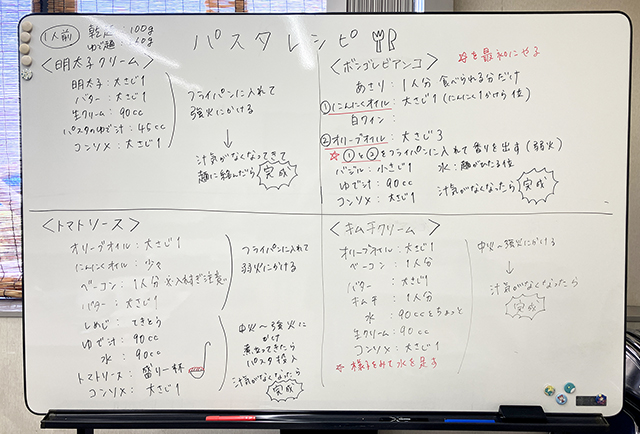 パスタレシピ
1人前 乾麺 100g
ゆで麺 160g
<明太子クリーム>
明太子:大さじ1
バター:大さじ1
生クリーム:90cc
パスタのゆで汁:45cc
コンソメ:大さじ1
フライパンに入れて
強火にかける
↓
汁気がなくなってきて
麺に絡んだら 完成
<ボンゴレビアンコ>
☆を最初にやる
あさり:1人分 食べられる分だけ
①にんにくオイル:大さじ1(にんにく1かけら位)
白ワイン:
②オリーブオイル:大さじ3
☆①と②をフライパンに入れて香りを出す(弱火)
バジル:小さじ1
水:麺がひたる位
ゆで汁:90cc
コンソメ:大さじ1
汁気がなくなったら 完成
<トマトソース>
オリーブオイル:大さじ1
にんにくオイル:少々
ベーコン:1人分 ※入れすぎ注意
バター:大さじ1
しめじ:てきとう
ゆで汁:90cc
水:90cc
トマトソース:盛り一杯
コンソメ:大さじ1
フライパンに入れて
弱火にかける
中火〜強火に
かけ
煮立ってきたら
パスタ投入
汁気がなくなったら
完成
<キムチクリーム>
オリーブオイル:大さじ1
ベーコン:1人分
バター:大さじ1
キムチ:1人分
水:90ccとちょっと
生クリーム:90cc
コンソメ:大さじ1
☆様子をみて水を足す
中火〜強火にかける
↓
汁気がなくなったら
完成